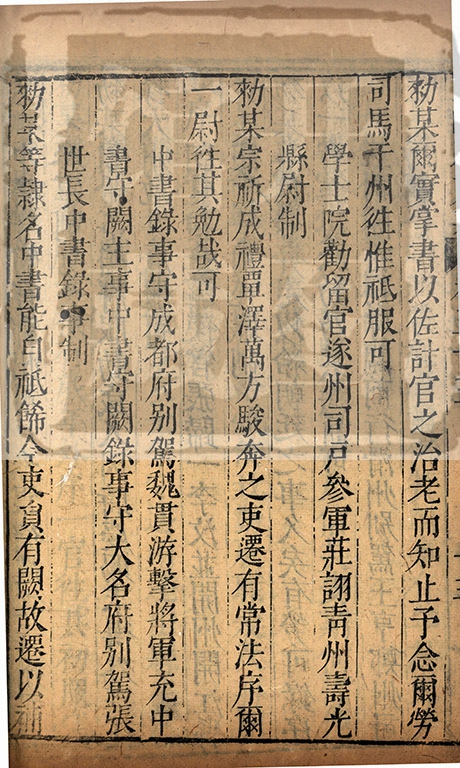 勑某爾實掌書以佐計官之治老而知止予念爾勞
司馬于州徃惟祗服可
學士院勸留官遂州司戸參軍莊詡青州壽光
縣尉制
勑某宗祈成禮單澤萬方駿奔之吏遷有常法序爾
一尉徃其勉哉可
中書錄事守成都府别駕魏貫游擊將軍充中
書守闕主事中書守闕錄事守大名府别駕張
世長中書錄事制
勑某等隷名中書能自祗飭今吏負有闕故遷以補